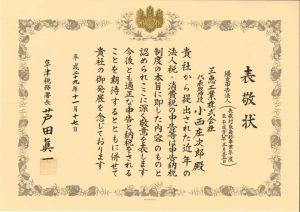 表敬状
三恵工業株式会社
代表取締役 小西庄次郎 殿
貴社から提出された近年の
法人税・消費税の申告等は申告納税
制度の本旨に即した内容のものと
認められここに深く敬意を表します
今後とも適正な申告と納税をされる
ことを期待するとともに併せて
貴社の御発展を念じております
平成二十九年十一月十七日
草津税務署長